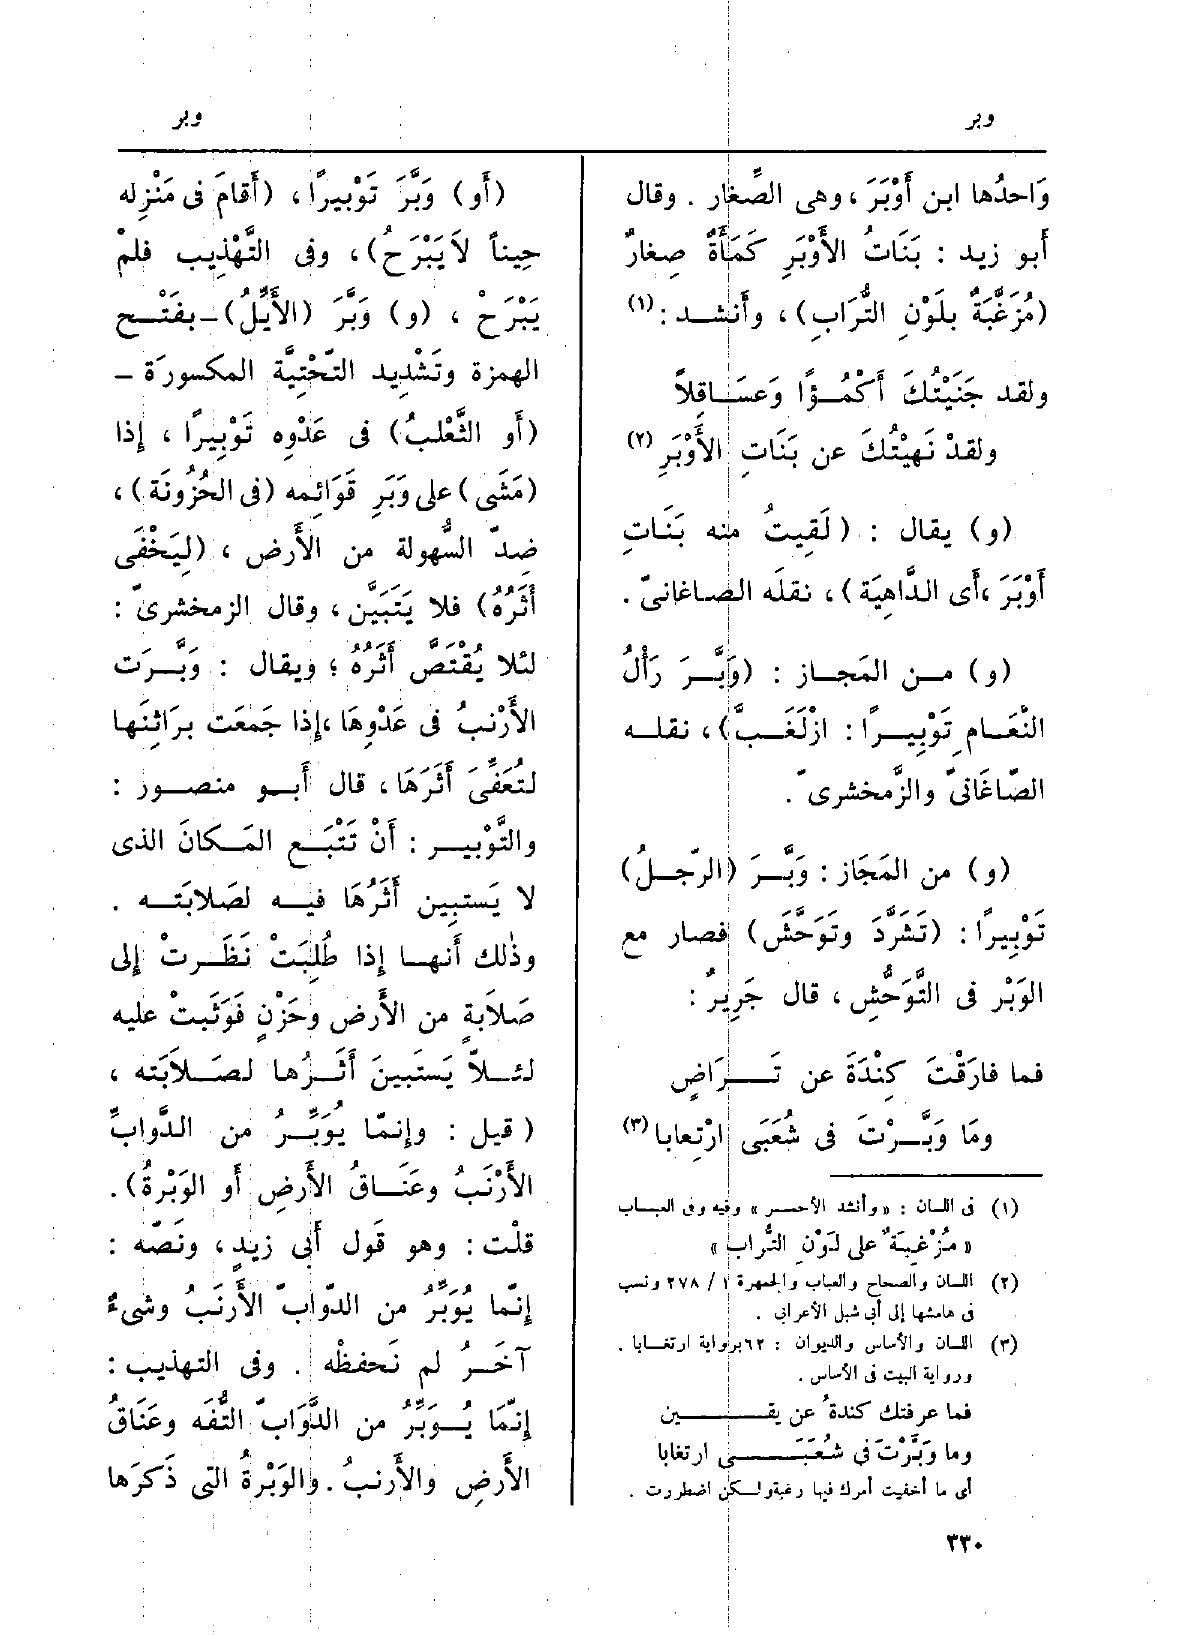 وبر
وبر
وَاحدُها ابن أَوْبَرَ ، وهى الصِّغار . وقال
أبو زيد : بَنَاتُ الأَوْبَرِ كَمْأَةٌ صِغارٌ
(مُزَغَّبَةٌ بلَوْنِ التُّرَابِ) ، وأَنشد : (١)
ولقد جَنَيْتُكَ أَكْمُؤًا وَعَسَاقِلاً
ولقدْ نَهَيْتُكَ عن بَنَاتِ الأَوْبَرِ (٢)
(و) يقال : (لَقِيتُ منه بَنَاتِ
أَوْبَرَ ، أَى الدَّاهِيَة) ، نقلَه الصاغانىّ .
(و) من المَجاز : (وَبَّرَ رَأْلُ
النَّعَامِ تَوْبِيرًا : ازْلَغَبَّ) ، نقله
الصّاغَانىّ والزَّمخشرىّ .
(و) من المَجَاز : وَبَّرَ (الرّجلُ)
تَوْبِيرًا : (تَشَرَّدَ وتَوَحَّشَ) فصار مع
الوَبْر فى التَّوَحُّشِ ، قال جَرِيرٌ :
فما فارَقْتَ كِنْدَةَ عن تَرَاضٍ
ومَا وَبَّرْتَ فى شُعَبَى ارْتعابا (٣)
(١) فى اللسان : «وأنشد الأحمر» وفيه وفى العباب
«مُزْغِبَةٌ على لَوْنِ التُّرابِ»
(٢) اللسان والصحاح والعباب والجمهرة ١ / ٢٧٨ ونسب
فى هامشها إلى أبى شبل الأعرابى .
(٣) اللسان والأساس والديوان : ٦٢ برواية ارتغابا .
ورواية البيت فى الأساس .
فما عرفتك كندةُ عن يقين
وما وَبَّرْتَ فى شُعَبَى ارتغابا
أى ما أخفيت أمرك فيها رغبة ولكن اضطررت .
(أَو) وَبَّرَ تَوْبيرًا ، (أَقامَ فى مَنْزِله
حِيناً لاَ يَبْرَحُ) ، وفى التَّهْذِيب فلمْ
يَبْرَحْ ، (و) وَبَّرَ (الأَيِّلُ) ــ بفتح
الهمزة وتَشْدِيد التَّحْتِيَّة المكسورَة ــ
(أَو الثَّعْلبُ) فى عَدْوِه تَوْبِيرًا ، إِذا
(مَشَى) على وَبَرِ قَوَائِمه (فى الحُزُونَة) ،
ضدّ السُّهولة من الأَرض ، (لِيَخْفَى
أَثَرُهُ) فلا يَتَبَيَّن ، وقال الزمخشرىّ :
لئلا يُقْتَصَّ أَثَرُهُ ؛ ويقال : وَبَّرَت
الأَرْنبُ فى عَدْوِهَا ، إِذا جَمعَت براثنَها
لتُعَفِّىَ أَثَرَهَا ، قال أَبو منصور :
والتَّوْبِير : أَنْ تَتْبَع المَكانَ الذى
لا يَستبِين أَثَرُهَا فيه لصَلابَتَه .
وذٰلك أَنها إِذا طُلِبَتْ نَظَرتْ إِلى
صَلاَبةٍ من الأَرض وحَزْنٍ فَوَثَبتْ عليه
لئلاّ يَستَبينَ أَثَرُها لصَلاَبَته ،
(قيل : وإِنمّا يُوَبِّرُ من الدَّوابِّ
الأَرْنَبُ وعَنَاقُ الأَرضِ أَو الوَبْرةُ) .
قلْت : وهو قَول أَبى زيدٍ ، ونصّه :
إِنمّا يُوَبِّرُ من الدّوابّ الأَرنَبُ وشىءٌ
آخَرُ لم نَحفظْه . وفى التهذيب :
إِنمّا يُوَبِّرُ من الدَّوَابّ التُّفَه وعَنَاقُ
الأَرضِ والأَرنبُ . والوَبْرةُ التى ذَكرَها
٣٣٠